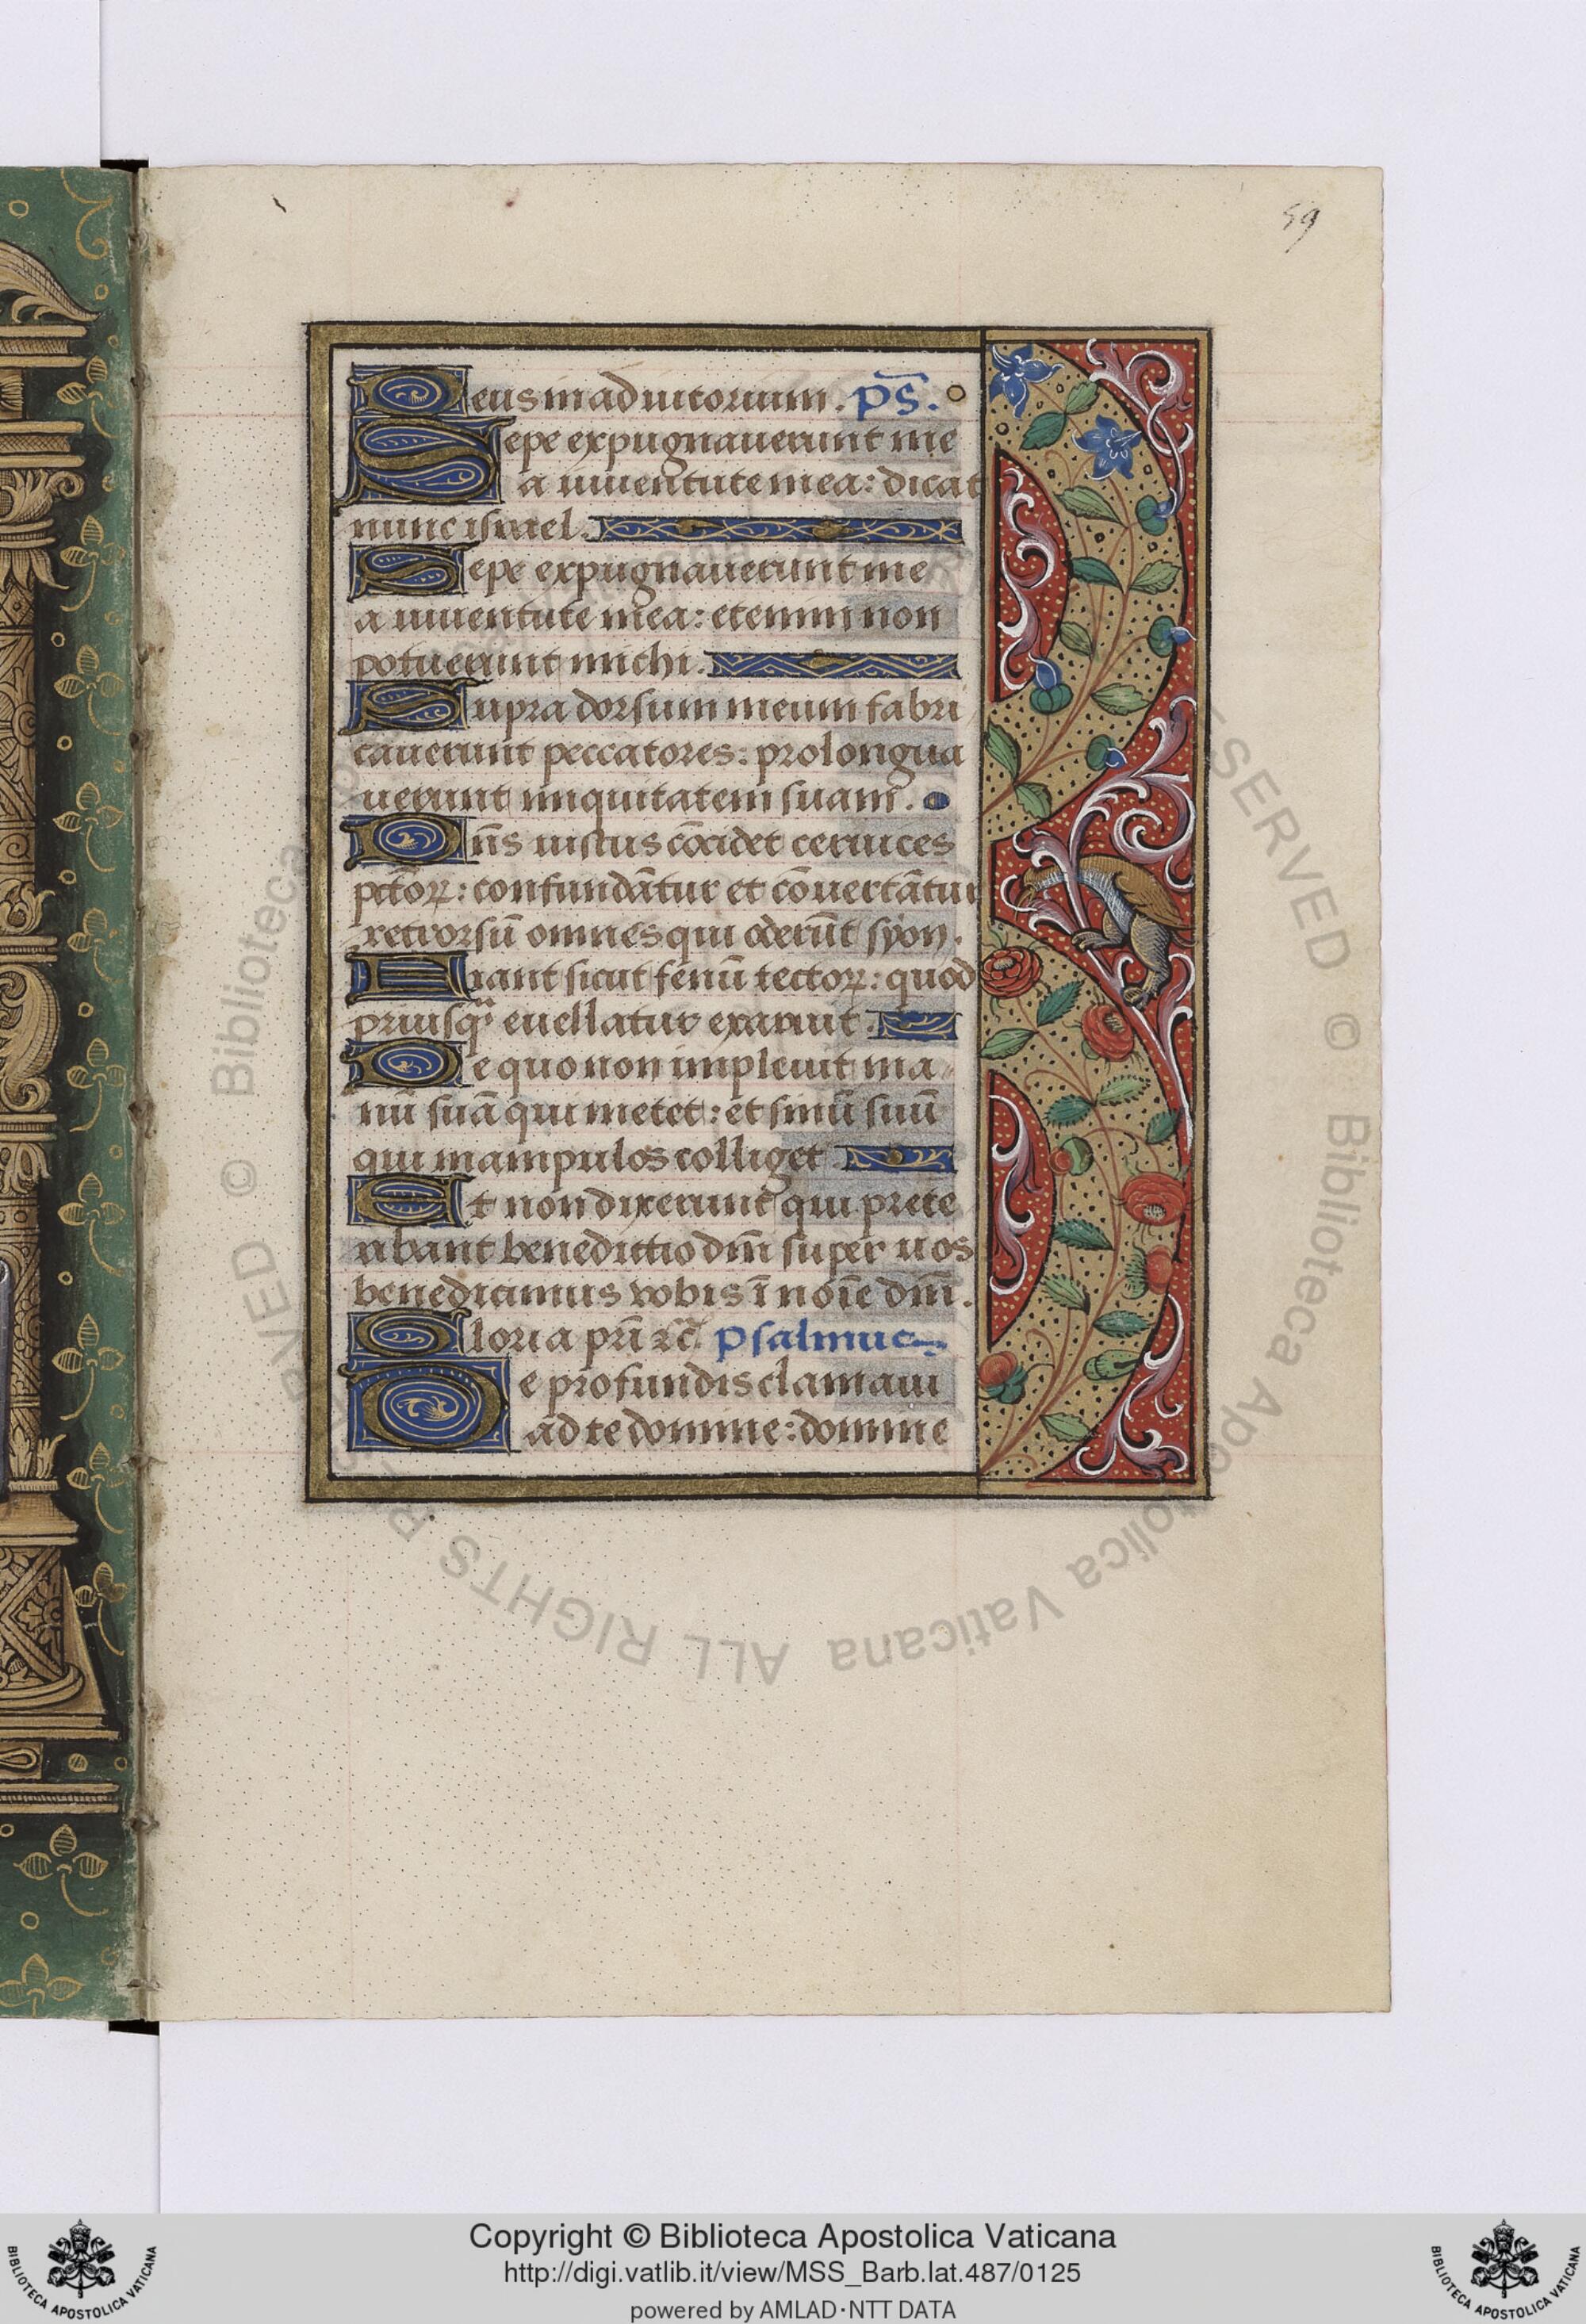 59
Deus in adiutorium. ps̄.
Sepe expugnauerunt me
a iuuentute mea: dicat
nunc israel.
Sepe expugnauerunt me
a iuuentute mea: etenim non
potuerunt michi.
Supra dorsum meum fabri
cauerunt peccatores: prolongua
uerunt iniquitatem suam.
Dn̄s iustus cōcidet ceruices
pctōꝝ: confundātur et cōuertātur
retrorsū omnes qui oderūt syon.
Fiant sicut fenū tectoꝝ: quod
priusqͣ euellatur exaruit.
De quo non impleuit ma
nū suā qui metet: et sinū suū
qui manipulos colliget
Et non dixerunt qui prete
ribant benedictio dn̄i super uos
benedicimus vobis ī noīe dn̄i.
Gloria pr̄i ⁊c̄. Psalmus
De profundis clamaui
ad te domine: domine
© Biblioteca Apostolica Vaticana ALL RIGHTS RESERVED
Copyright © Biblioteca Apostolica Vaticana
http://digi.vatlib.it/view/MSS_Barb.lat.487/0125
powered by AMLAD·NTT DATA
BIBLIOTECA APOSTOLICA VATICANA
BIBLIOTECA APOSTOLICA VATICANA